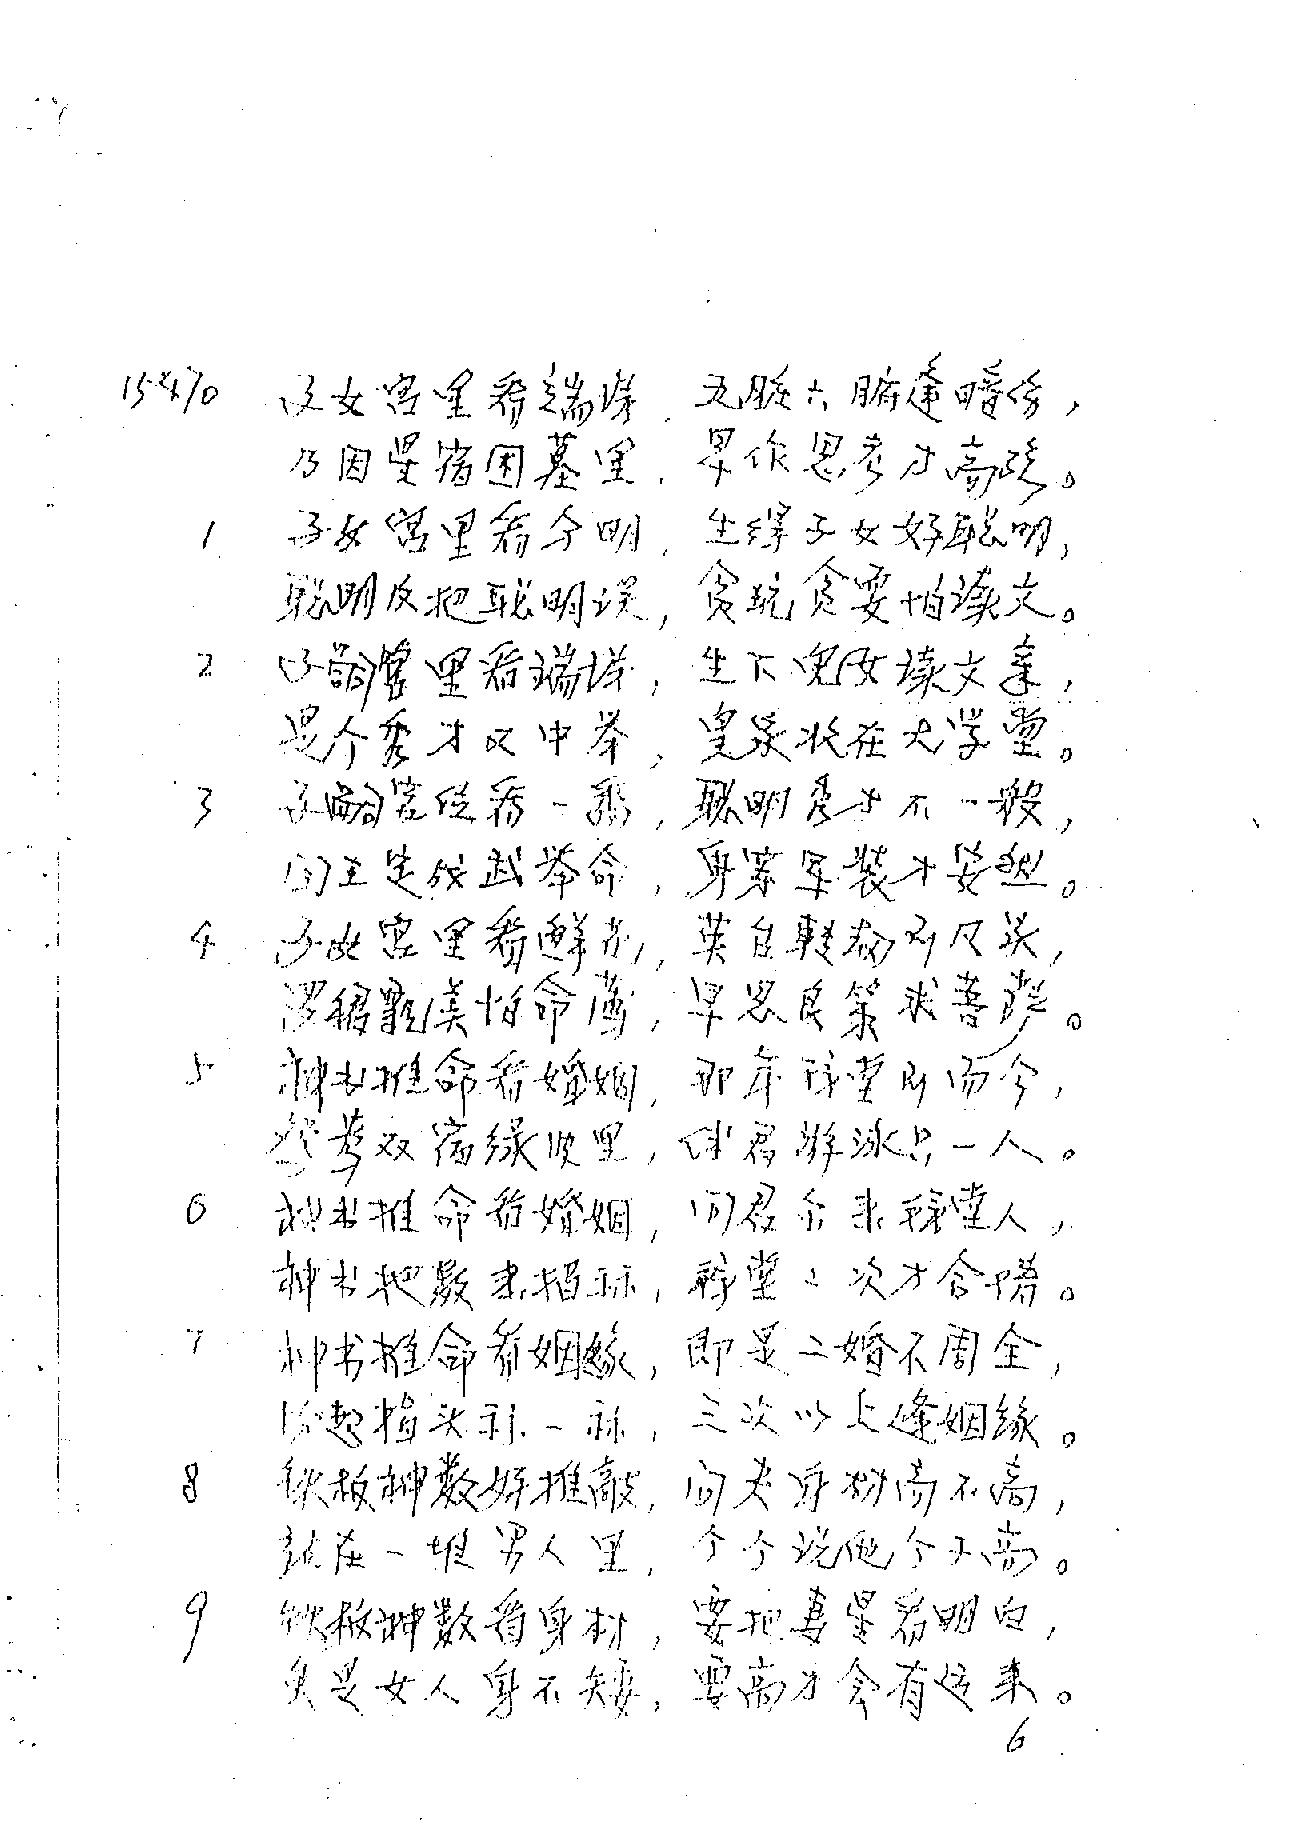 15470 子女宫里看端详，五脏六腑逢暗伤，
乃因星宿困墓里，早作思考才高强。
1 子女宫里看分明，生得子女好聪明，
聪明反把聪明误，贪玩贪耍怕读文。
2 子嗣宫里看端详，生下儿女读文章，
是个秀才又中举，皇录状在大学堂。
3 子嗣宫位看一般，聪明秀才不一般，
问主是做武举命，身穿军装才安然。
4 子女宫里看鲜花，
早思良策求菩萨。
5 神书推命看婚姻，那年拜堂到而今，
鸳鸯双宿绿波里，伴君游泳只一人。
6 神书推命看婚姻，问君命来拜堂人，
神书把数来揭示，拜堂二次才合婚。
7 神书推命看姻缘，即是二婚不周全，
扮起指头算一算，三次以上逢姻缘。
8 铁板神数好推敲，问夫身材高不高，
站在一堆男人里，个个说他个不高。
9 铁板神数看身材，要把妻星看明白，
乃是女人身不矮，要高才会有这来。
6